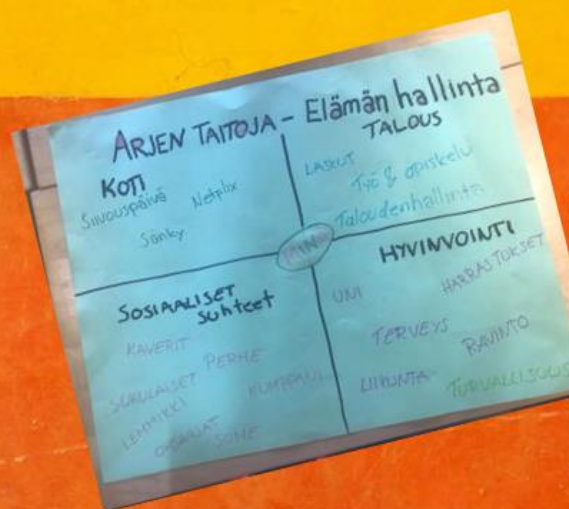 ARJEN TAITOJA - Elämän hallinta
KOTI
Siivouspäivä
Netflix
Sänky
TALOUS
LASKUT
Työ & opiskelu
Taloudenhallinta
SOSIAALISET
Suhteet
KAVERIT
PERHE
SUKULAISET
KUMPPANI
LEMMIKKI
SOME
HYVINVOINTI
UNI
HARRASTUKSET
TERVEYS
RAVINTO
LIIKUNTA
TURVALLISUUS